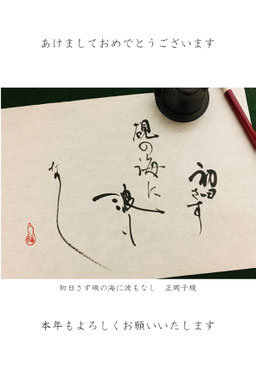 あけましておめでとうございます
初日さす
硯の海に
波も
なし
初日さす硯の海に波もなし　正岡子規
本年もよろしくお願いいたします